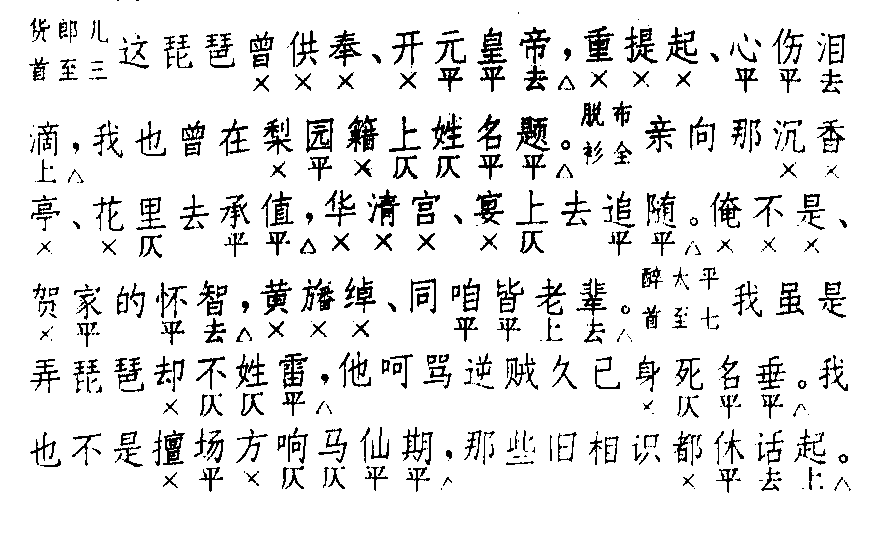 货郎儿首至三 这琵琶曾供奉、开元皇帝，重提起、心伤泪
× × × × 平 平 去 △ × × × 平 平 去
滴，我也曾在梨园籍上姓名题。脱布衫全 亲向那沉香
上 △ × 平 × 仄 仄 平 平 △ × ×
亭、花里去承值，华清宫、宴上去追随。俺不是、
× × 仄 平 平 △ × × × × 仄 平 平 △ × × ×
贺家的怀智，黄旛绰、同咱皆老辈。醉太平首至七 我虽是
× 平 平 去 △ × × × 平 平 上 去 △
弄琵琶却不姓雷，他呵骂逆贼久已身死名垂。我
× 仄 仄 平 △ × 仄 平 平 △
也不是擅场方响马仙期，那些旧相识都休话起。
× 平 × 仄 仄 平 平 △ × 平 去 上 △